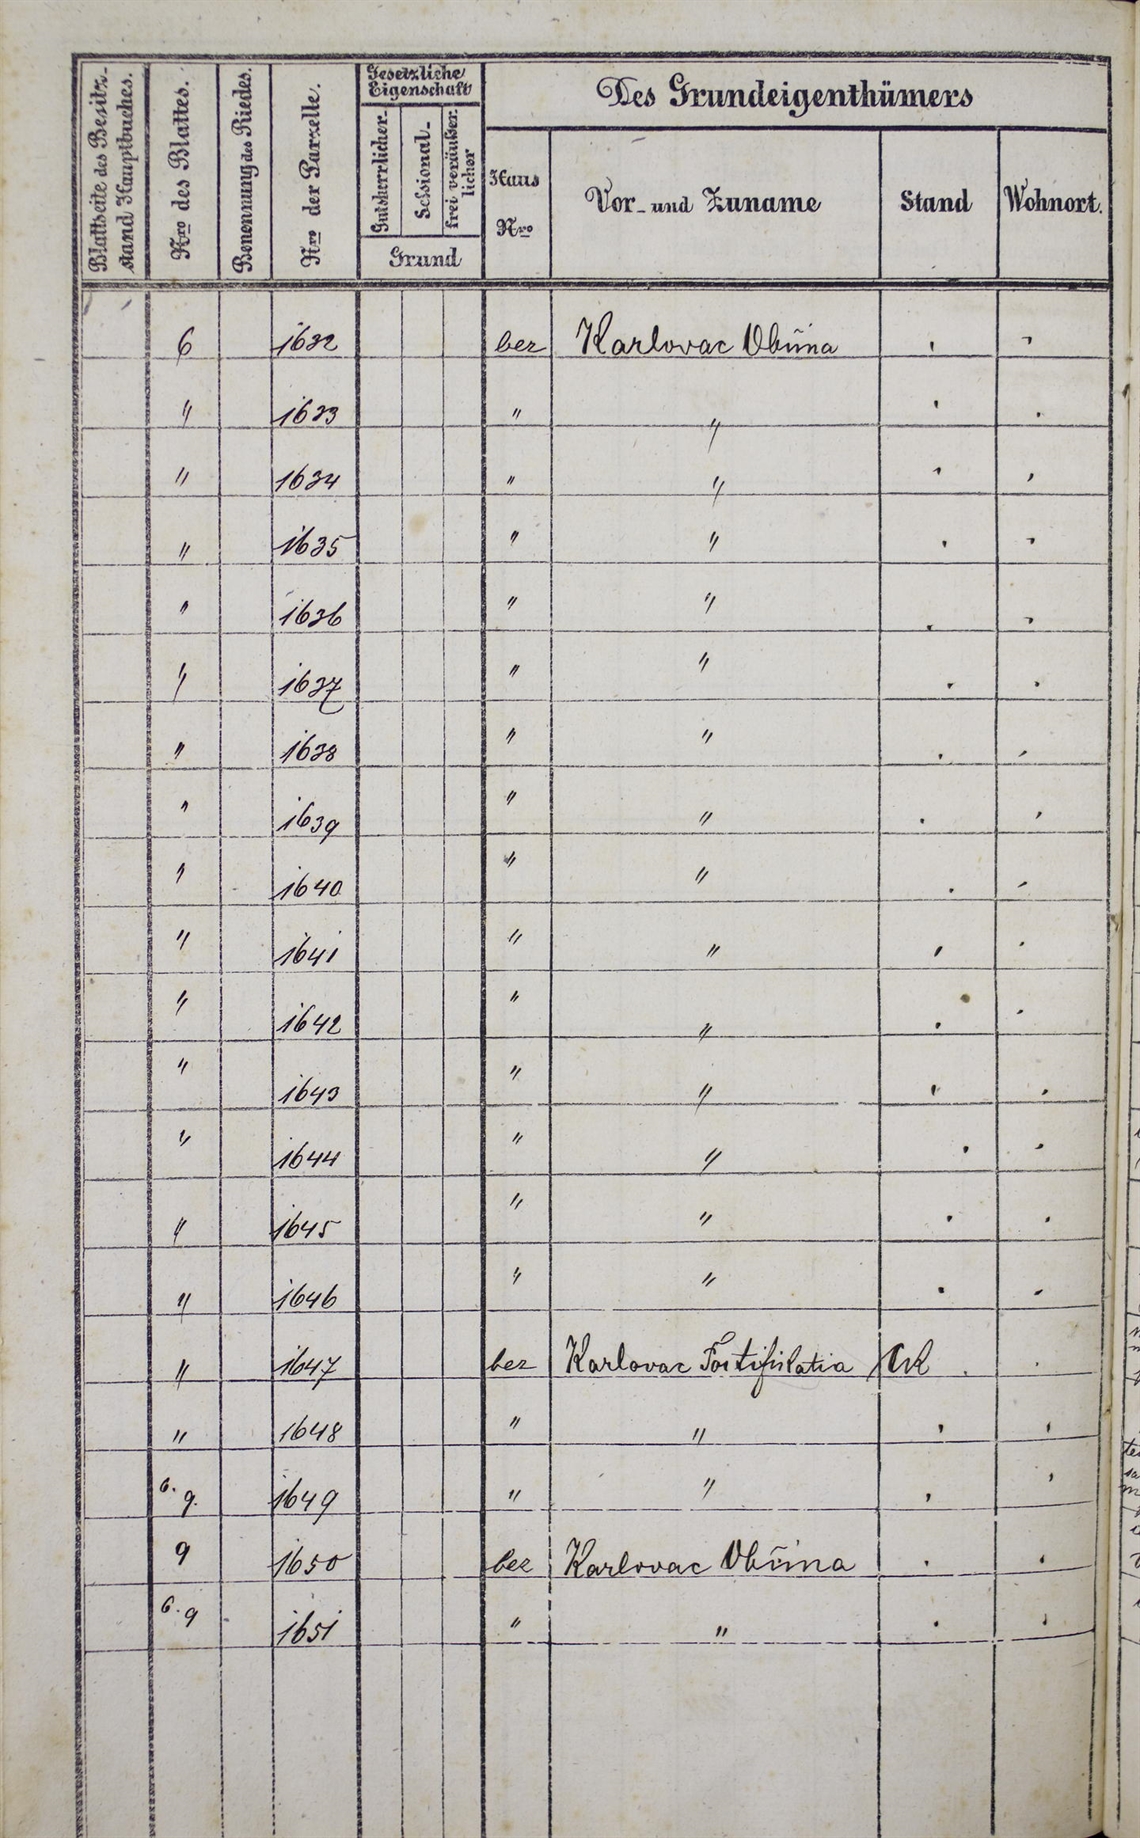 Blattseite des Besitz-
stand Hauptbuches.
Nro des Blattes.
Benennung des Riedes.
Nro der Parzelle.
Gesetzliche
Eigenschaft
Gutsherrlicher
Sessional-
frei veräußer-
licher
Grund
Des Grundeigenthümers
Haus
Nro
Vor- und Zuname
Stand
Wohnort.
6 1632 bez Karlovac Občina
" 1633 " "
" 1634 " "
" 1635 " "
" 1636 " "
" 1637 " "
" 1638 " "
" 1639 " "
" 1640 " "
" 1641 " "
" 1642 " "
" 1643 " "
" 1644 " "
" 1645 " "
" 1646 " "
" 1647 bez Karlovac Fortifikatia
" 1648 " "
6. 9. 1649 " "
9 1650 bez Karlovac Občina
6. 9 1651 " "